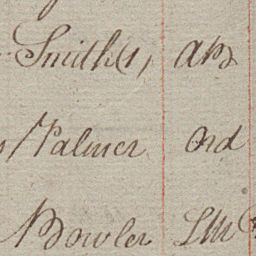 Smith (1) AB
Palmer Ord
Bowler LM